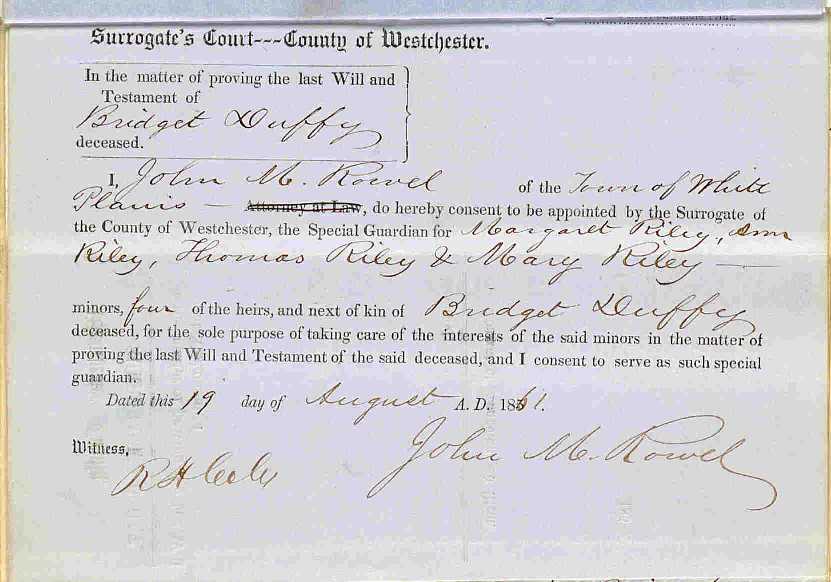 Surrogate's Court---County of Westchester.
In the matter of proving the last Will and
Testament of
Bridget Duffy
deceased.
I, John M. Rowel of the Town of White
Plains — Attorney at Law, do hereby consent to be appointed by the Surrogate of
the County of Westchester, the Special Guardian for Margaret Riley, Ann
Riley, Thomas Riley & Mary Riley —
minors, four of the heirs, and next of kin of Bridget Duffy
deceased, for the sole purpose of taking care of the interests of the said minors in the matter of
proving the last Will and Testament of the said deceased, and I consent to serve as such special
guardian.
Dated this 19 day of August A. D. 1861.
Witness,
John M. Rowel
R H